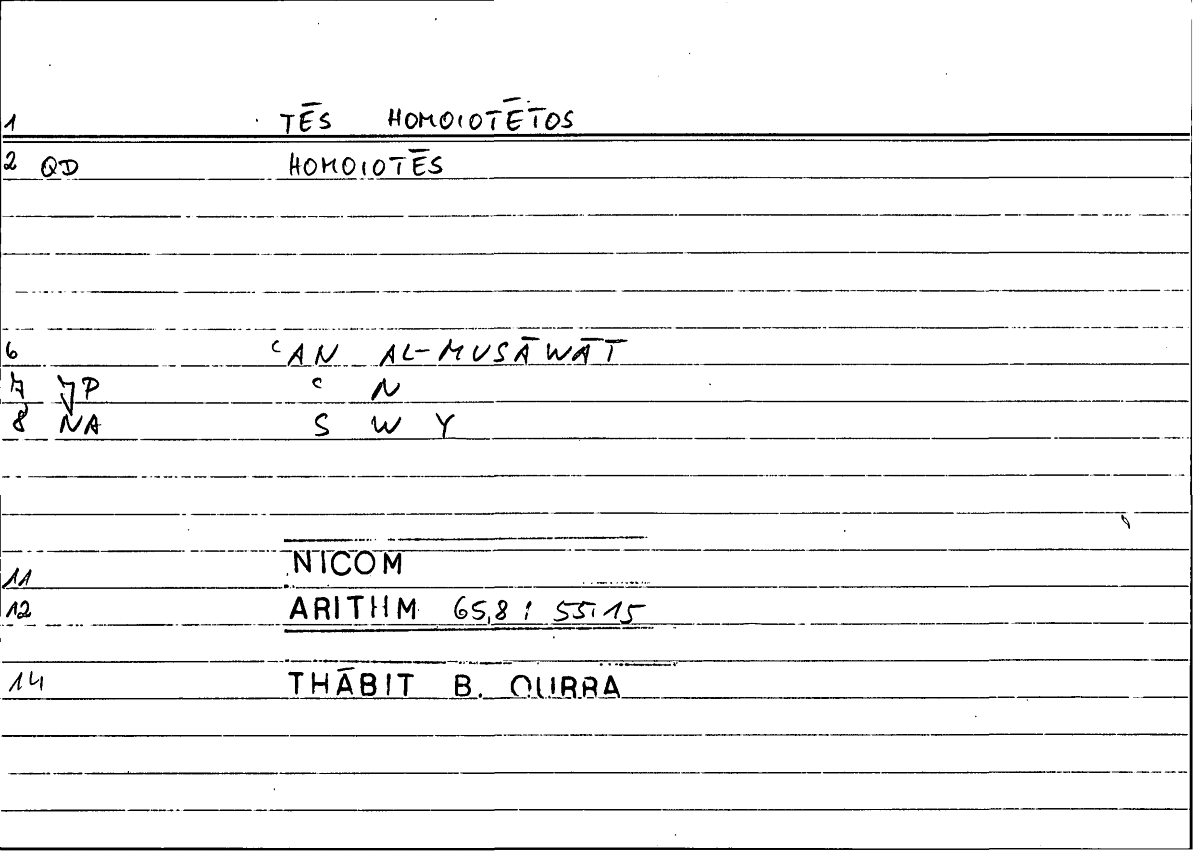 1 TĒS HOMOIOTĒTOS
2 QD HOMOIOTĒS
6 ʿAN AL-MUSĀWĀT
7 JP ʿ N
8 NA S W Y
11 NICOM
12 ARITHM 65,8 : 55,15
14 THĀBIT B. QURRA